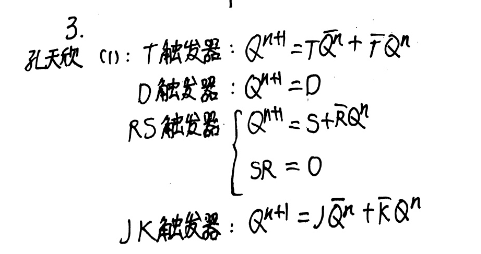 3.
孔天欣 (1): T触发器: Qⁿ⁺¹=TQ̅ⁿ+T̅Qⁿ
D触发器: Qⁿ⁺¹=D
RS触发器 { Qⁿ⁺¹=S+R̅Qⁿ
SR=0
JK触发器: Qⁿ⁺¹=JQ̅ⁿ+K̅Qⁿ